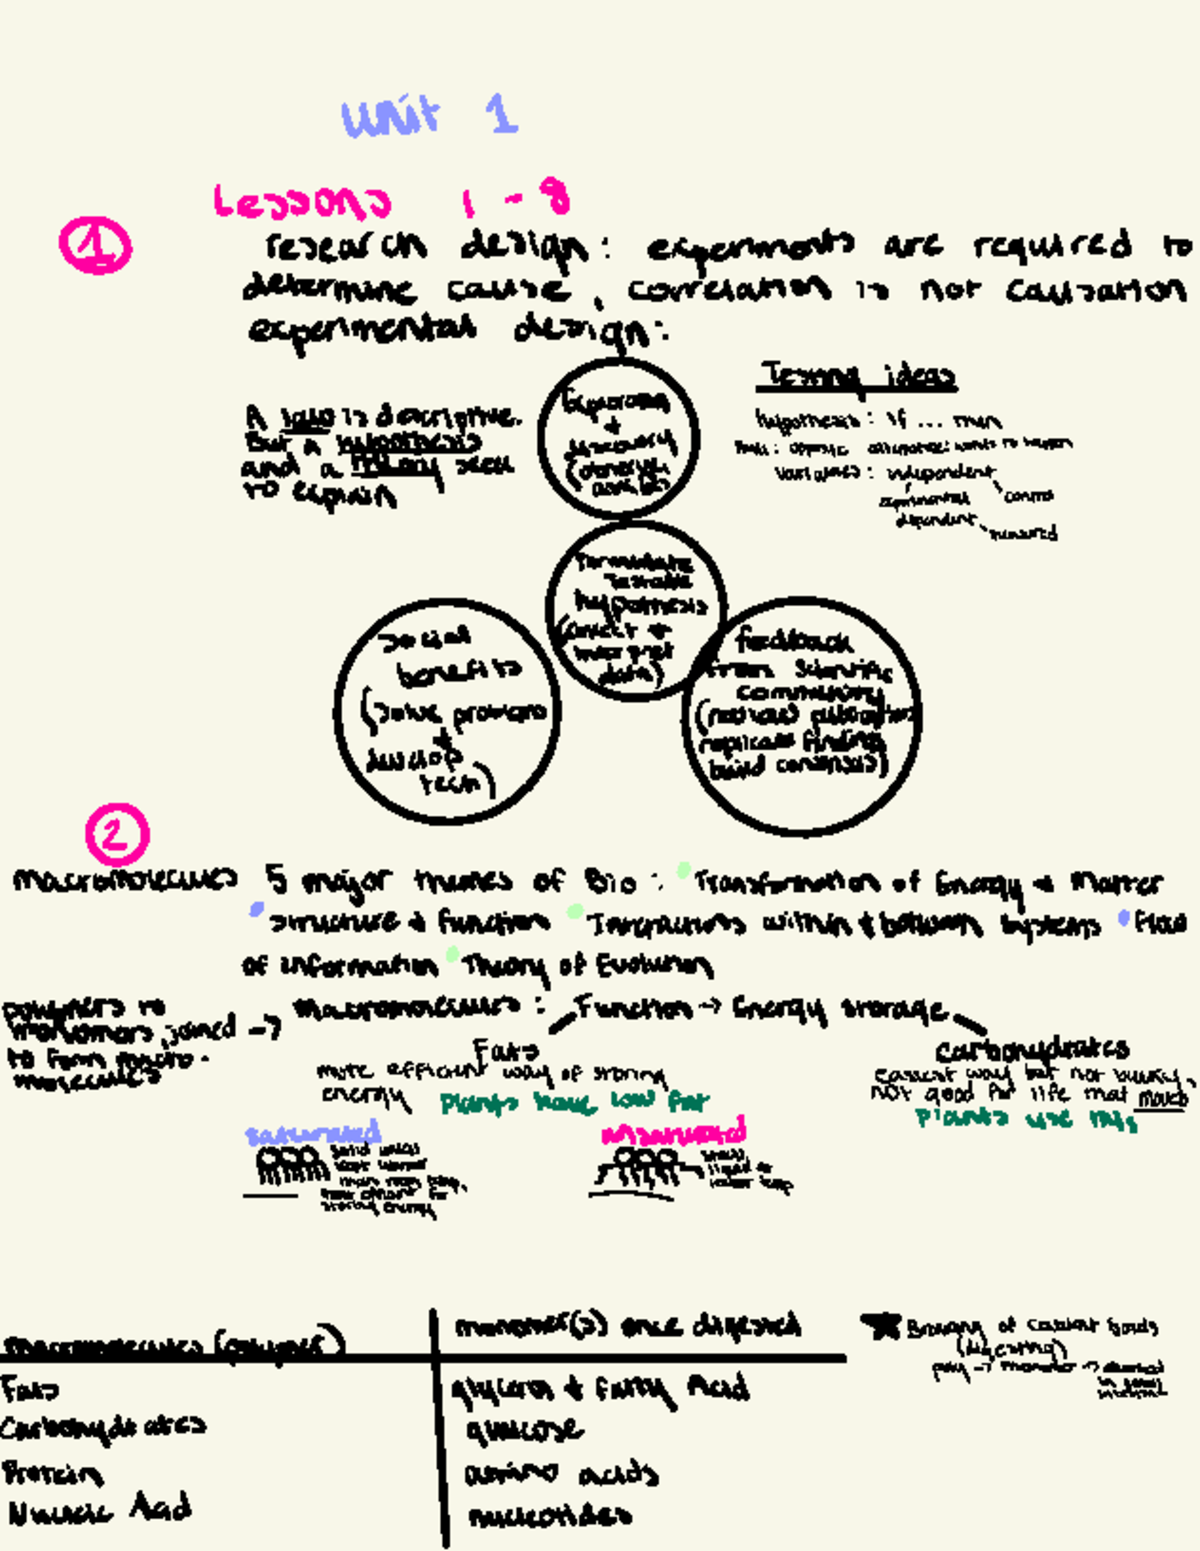 Unit 1
Lessons 1 - 8
1
research design: experiments are required to
determine cause, correlation is not causation
experimental design:
A law is descriptive.
But a hypothesis
and a theory seek
to explain
Exploration
+
discovery
(observe,
Testing ideas
hypothesis: if ... then
Null: opposite alternative: wants to happen
variables: independent
experimental control
dependent measured
formulate
testable
hypothesis
(collect +
interpret
data)
social
benefits
(solve problems
+
develop
tech)
feedback
from scientific
community
(review publication
replicate finding,
build consensus)
2
macromolecules 5 major themes of Bio: Transformation of Energy + Matter
structure + function Interactions within + between systems Flow
of information Theory of Evolution
polymers to
monomers, joined
to form macro-
molecules
-> macromolecules: Function -> Energy storage
Fats
more efficient way of storing
energy plants have low fat
carbohydrates
easiest way but not bulky,
not good for life that moves
plants use this
saturated
storing energy
unsaturated
liquid at
lower temp
macromolecules (polymer)
monomer(s) once digested
Fats
glycerol + fatty Acid
Carbohydrates
glucose
Protein
amino acids
Nucleic Acid
nucleotides
Breaking of covalent bonds
(digesting)
poly -> monomer ->